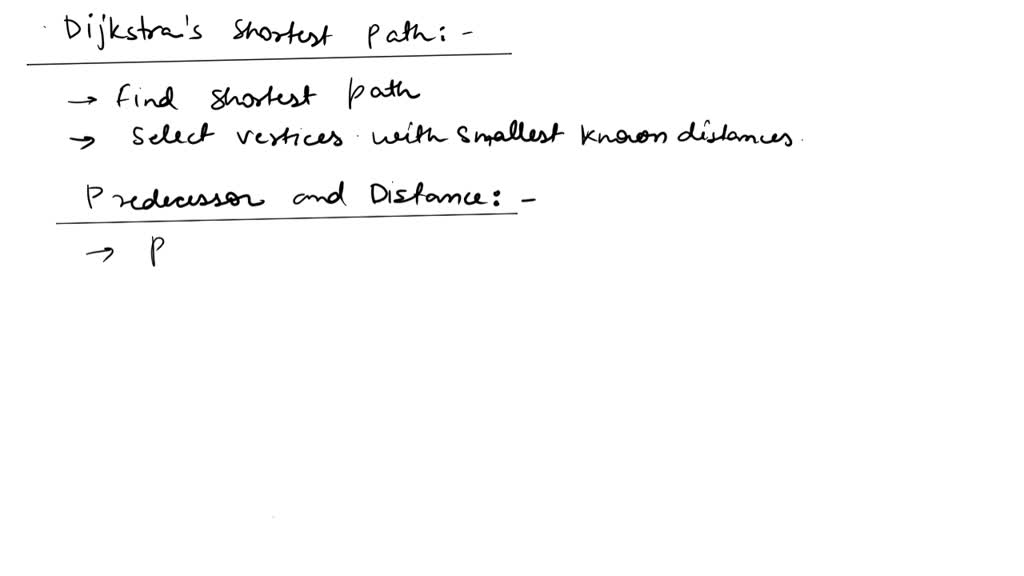 Dijkstra's Shortest Path: -
→ Find shortest path
→ Select vertices with smallest known distances.
Predecessor and Distance: -
→ P